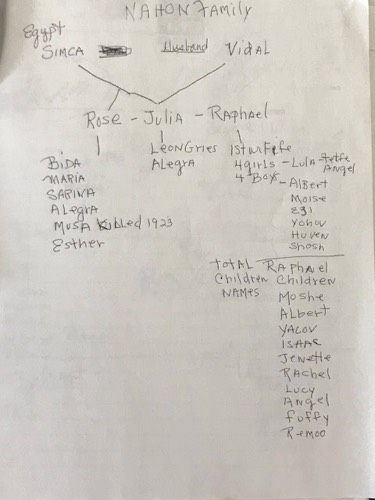 NAHON FAMILY
Egypt
SIMCA Husband VIDAL
Rose - Julia - Raphael
BIDA
MARIA
SARINA
ALEgRA
MUSA Killed 1923
Esther
LEONGRIES
ALEgRA
1st WIFE
4 girls - LULA -
Angel
4 Boys - Albert
Moise
Shosh
TOTAL RAphAEl
Children Children
NAMES
Moshe
Albert
YACOV
ISAAC
JENETTE
RAchel
Lucy
Angel
fuffy
Remoo